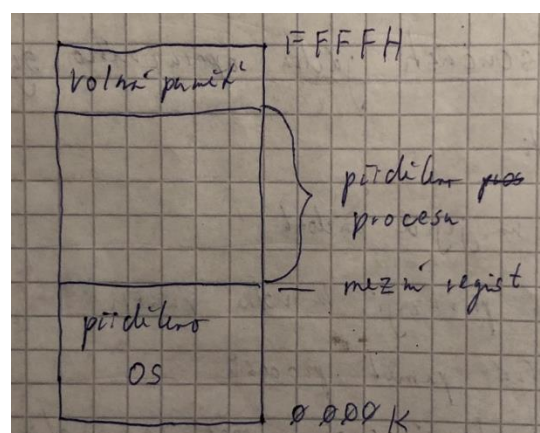 FFFFH
volná paměť
přiděleno
procesu
mezní regist
přiděleno
OS
0000K